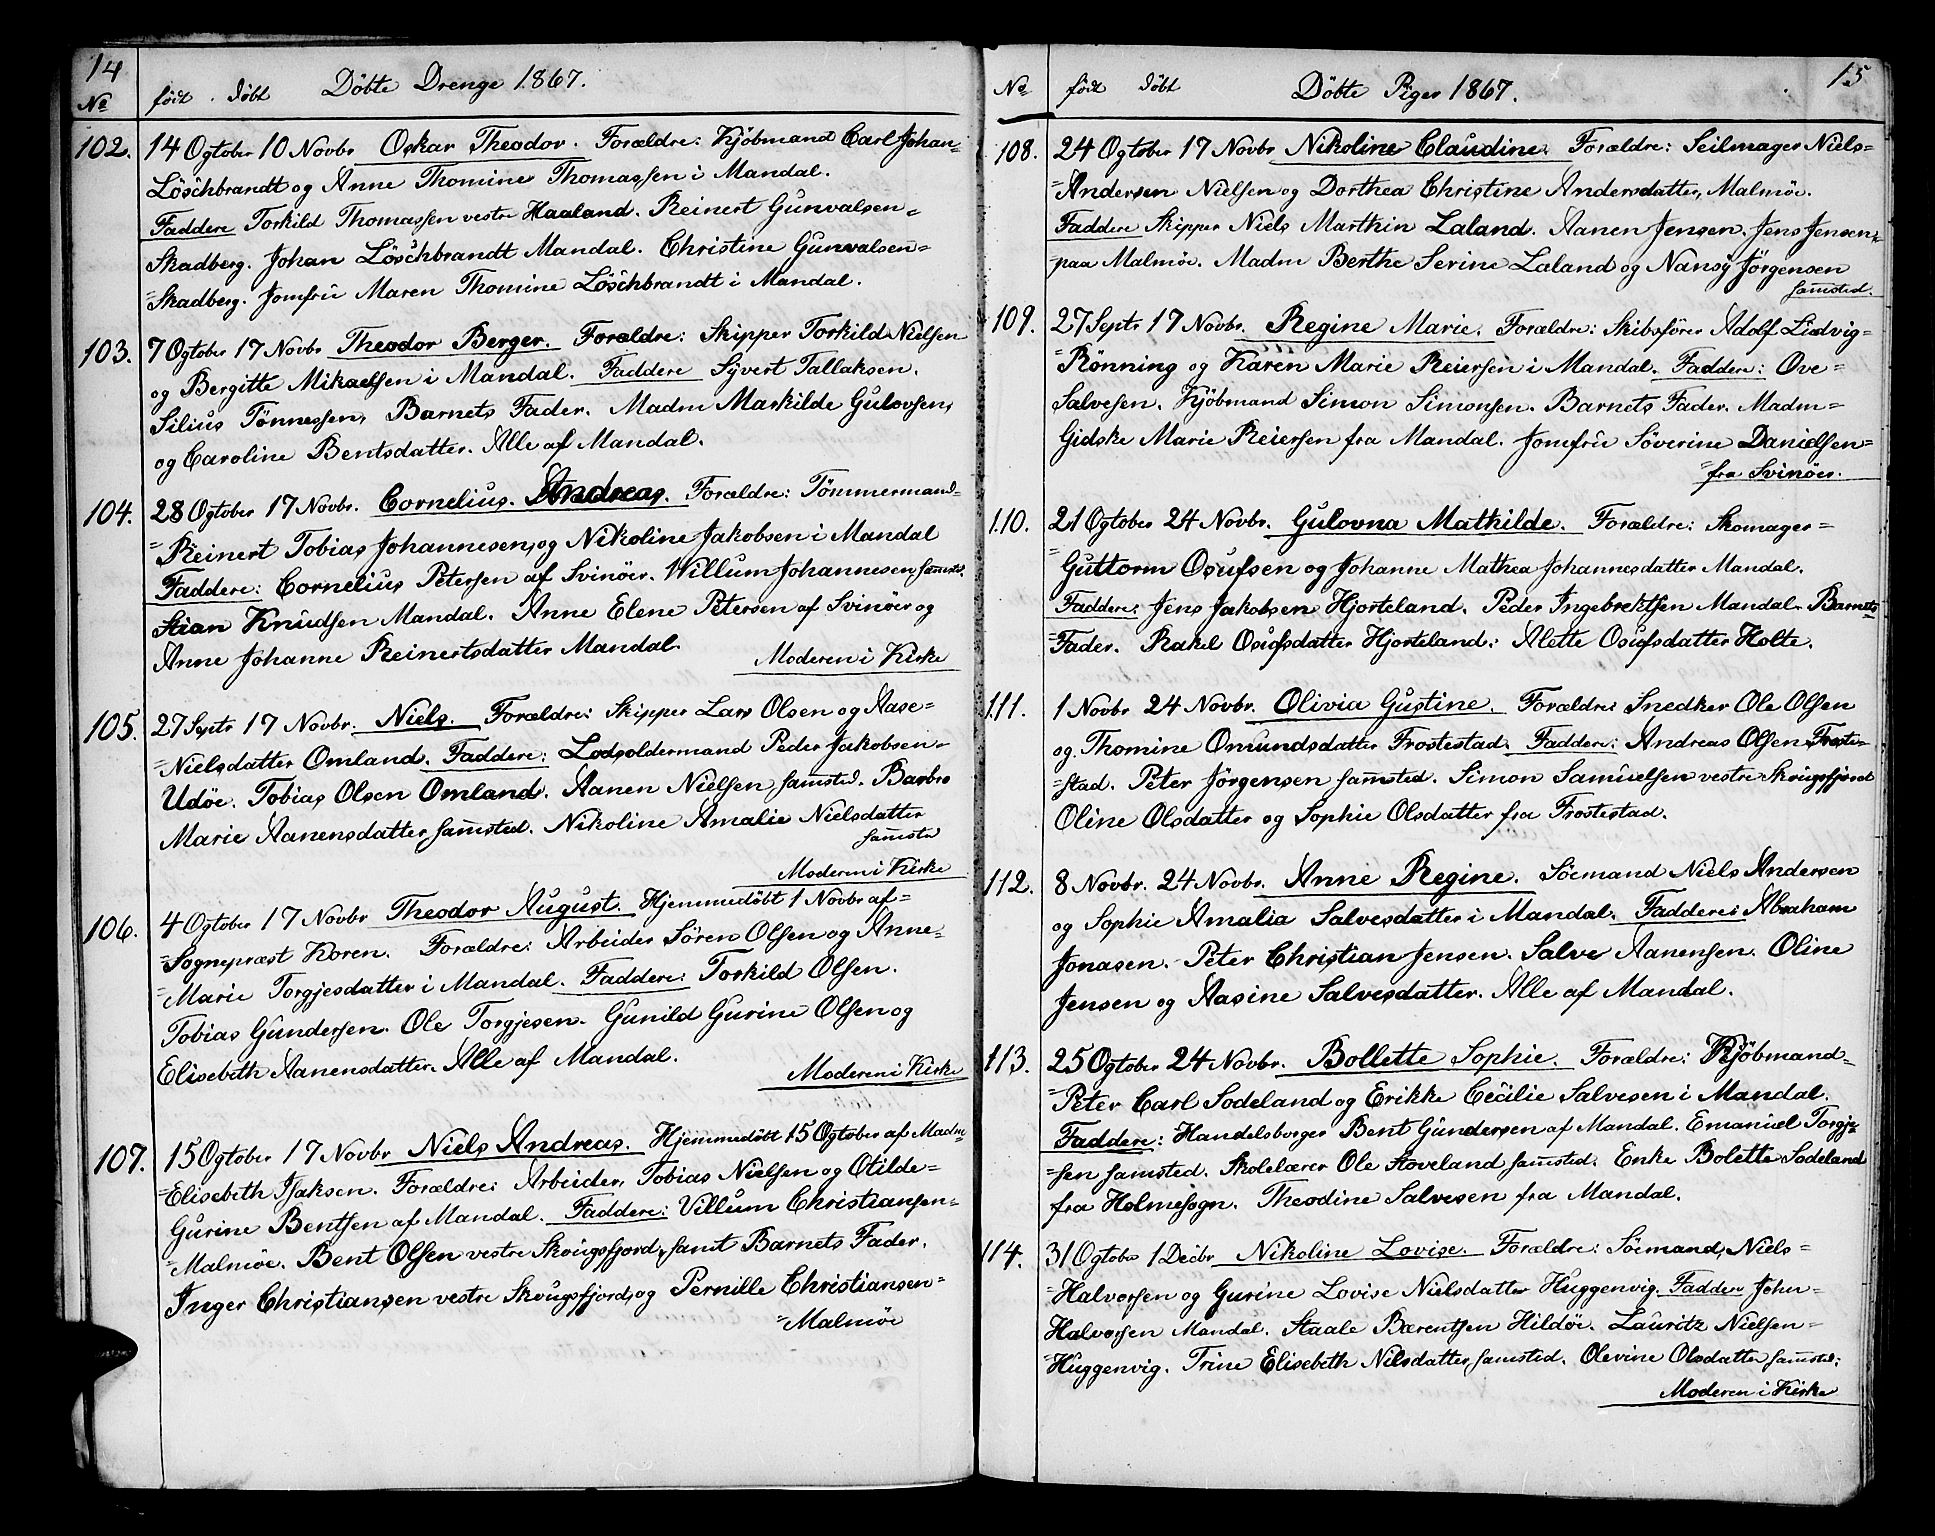 14
No født. døbt Döbte Drenge 1867.
102. 14 Ogtober 10 Novbr Oskar Theodor. Forældre: Kjöbmand Carl Johan-
Löschbrandt og Anne Thomine Thomassen i Mandal.
Faddere Torkild Thomassen vestre Haaland. Reinert Gunvalsen=
Skadberg. Johan Löschbrandt Mandal. Christine Gunvalsen=
=Skadberg. Jomfrü Maren Thomine Löschbrandt i Mandal.
103. 7 Ogtober 17 Novbr Theodor Berger. Forældre: Skipper Torkild Nielsen
og Bergitte Mikaelsen i Mandal. Faddere Syvert Tallaksen.
Silius Tönnessen, Barnets Fader. Madm Markilde Gulovsen,
og Caroline Bentsdatter. Alle af Mandal.
104. 28 Ogtober 17 Novbr. Cornelius. Andreas. Forældre: Tömmermand=
=Reinert Tobias Johannesen, og Nikoline Jakobsen i Mandal
Faddere: Cornelius Petersen af Svinöer. Willum Johannesen, samsts.
Stian Knüdsen Mandal. Anne Elene Petersen af Svinöer og
Anne Johanne Reinertsdatter Mandal.
Moderen i Kirke
105. 27 Septr 17 Novbr. Niels. Forældre: Skipper Lars Olsen og Aase=
=Nielsdatter Omland. Faddere: Lodsoldermand Peder Jakobsen=
Udöe. Tobias Olsen Omland. Aanen Nielsen, samsted. Barbro
Marie Aanensdatter samsted. Nikoline Amalie Nielsdatter
samstd
Moderen i Kirke
106. 4 Ogtober 17 Novbr Theodor August. Hjemmedöbt 1 Novbr af=
=Sognepræst Koren. Forældre: Arbeider Sören Olsen og Anne=
=Marie Torgjesdatter i Mandal. Faddere: Torkild Olsen.
Tobias Gündersen. Ole Torgjesen. Günild Gurine Olsen og
Elisebeth Aanensdatter. Alle af Mandal.
Moderen i Kirke
107. 15 Ogtober 17 Novbr Niels Andreas. Hjemmedöbt 15 Ogtober af Madm
=Elisebeth Isaksen. Forældre: Arbeider, Tobias Nielsen og Otilde=
Gurine Bentsen af Mandal. Faddere: Villum Christiansen=
=Malmöe. Bent Olsen vestre Skougsfjord, samt Barnets Fader.
Inger Christiansen vestre Skougsfjord, og Pernille Christiansen=
=Malmöe
15
No født døbt Döbte Piger 1867.
108. 24 Ogtober 17 Novbr Nikoline Claudine. Forældre: Seilmager Niels=
=Andersen Nielsen og Dorthea Christine Andersdatter, Malmöe.
Faddere Skipper Niels Marthin Laland. Aanen Jensen. Jens Jensen,
=paa Malmöe. Madm Berthe Serine Laland og Nansy Jörgensen
samsted.
109. 27 Septr 17 Novbr. Regine Marie. Forældre: Skibsförer Adolf Lüdvig=
=Rönning og Karen Marie Reiersen i Mandal. Faddere: Ove=
Salvesen. Kjöbmand Simon Simonsen. Barnets Fader. Madm=
Gidske Marie Reiersen fra Mandal. Jomfrü Söverine Danielsen=
=fra Svinöer.
110. 21 Ogtober 24 Novbr. Gulovna Mathilde. Forældre: Skomager=
=Guttorm Osufsen og Johanne Mathea Johannesdatter Mandal.
Faddere: Jens Jakobsen Hjorteland. Peder Ingebrektsen Mandal. Barnets
=Fader. Rakel Osufsdatter Hjorteland: Alette Osufsdatter Holte.
111. 1 Novbr 24 Novbr. Olivia Gustine. Forældre: Snedker Ole Olsen
og Thomine Omundsdatter Frostestad. Faddere: Andreas Olsen Froste-
=stad. Peter Jörgensen samsted. Simon Samüelsen vestre Skougsfjord
Oline Olsdatter og Sophie Olsdatter fra Frostestad.
112. 8 Novbr. 24 Novbr. Anne Regine. Söemand Niels Andersen
og Sophie Amalia Salvesdatter i Mandal. Faddere: Abraham
Jonasen. Peter Christian Jensen. Salve Aanensen. Oline
Jensen og Aasine Salvesdatter. Alle af Mandal.
113. 25 Ogtober 24 Novbr. Bollette Sophie. Forældre: Kjöbmand=
=Peter Carl Sodeland og Erikke Cecilie Salvesen i Mandal.
Faddere: Handelsborger Bent Gündersen af Mandal. Emanüel Torgje=
=sen samsted. Skolelærer Ole Stoveland samsted. Enke Bolette Sodeland
fra Holmesogn. Theodine Salvesen fra Mandal.
114. 31 Ogtober 1 Decbr Nikoline Lovise. Forældre: Söemand, Niels=
=Halvorsen og Gurine Lovise Nielsdatter Huggenvig. Faddere John=
Halvorsen Mandal. Staale Bærentsen Hildöe. Lauritz Nielsen=
=Huggenvig. Trine Elisebeth Nilsdatter samsted. Olevine Olsdatter samsted:
Moderen i Kirke